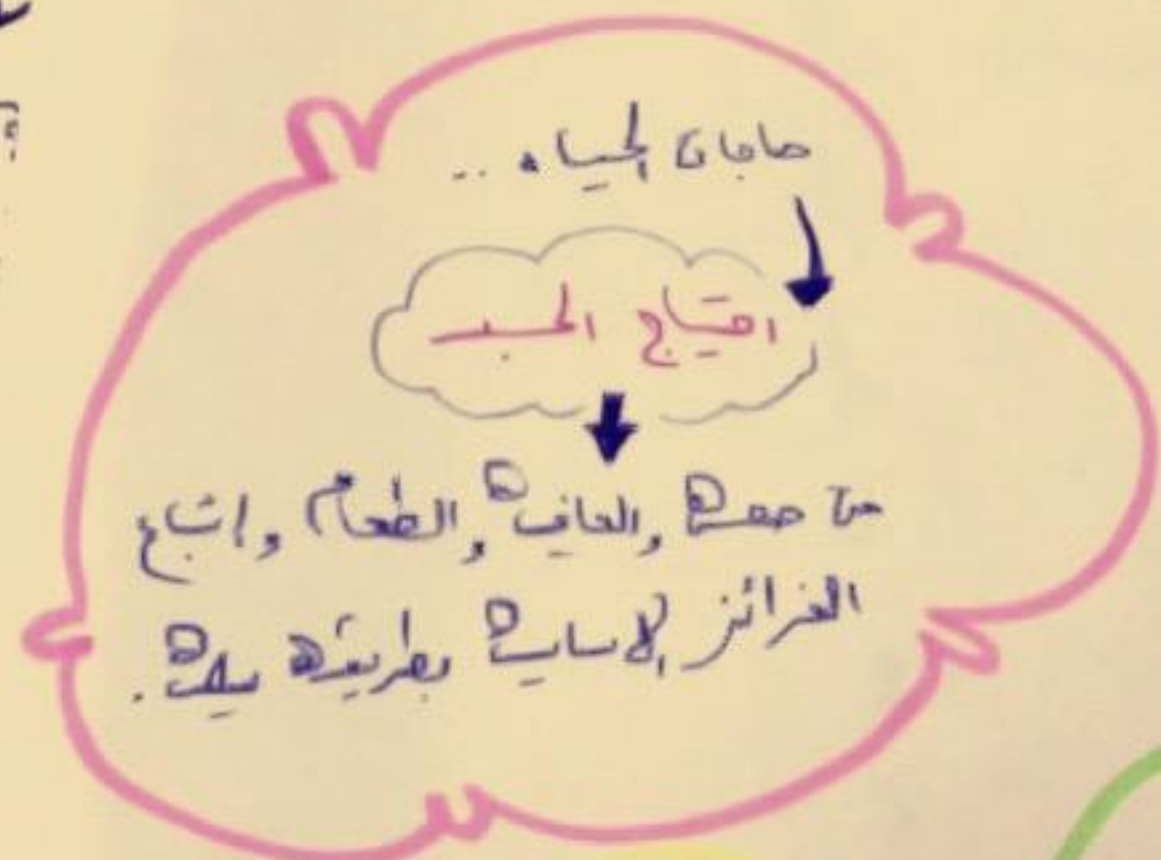 حاجات الحياه ..
احتياج الجسد
من صحه والعافيه والطعام وإشباع
الغرائز الاساسيه بطريقه سليمه .